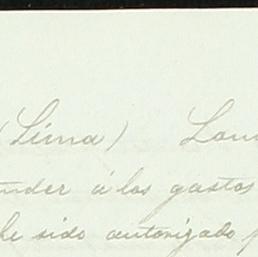 (Lima) Lon
nder á los gastos
he sido autorizado p